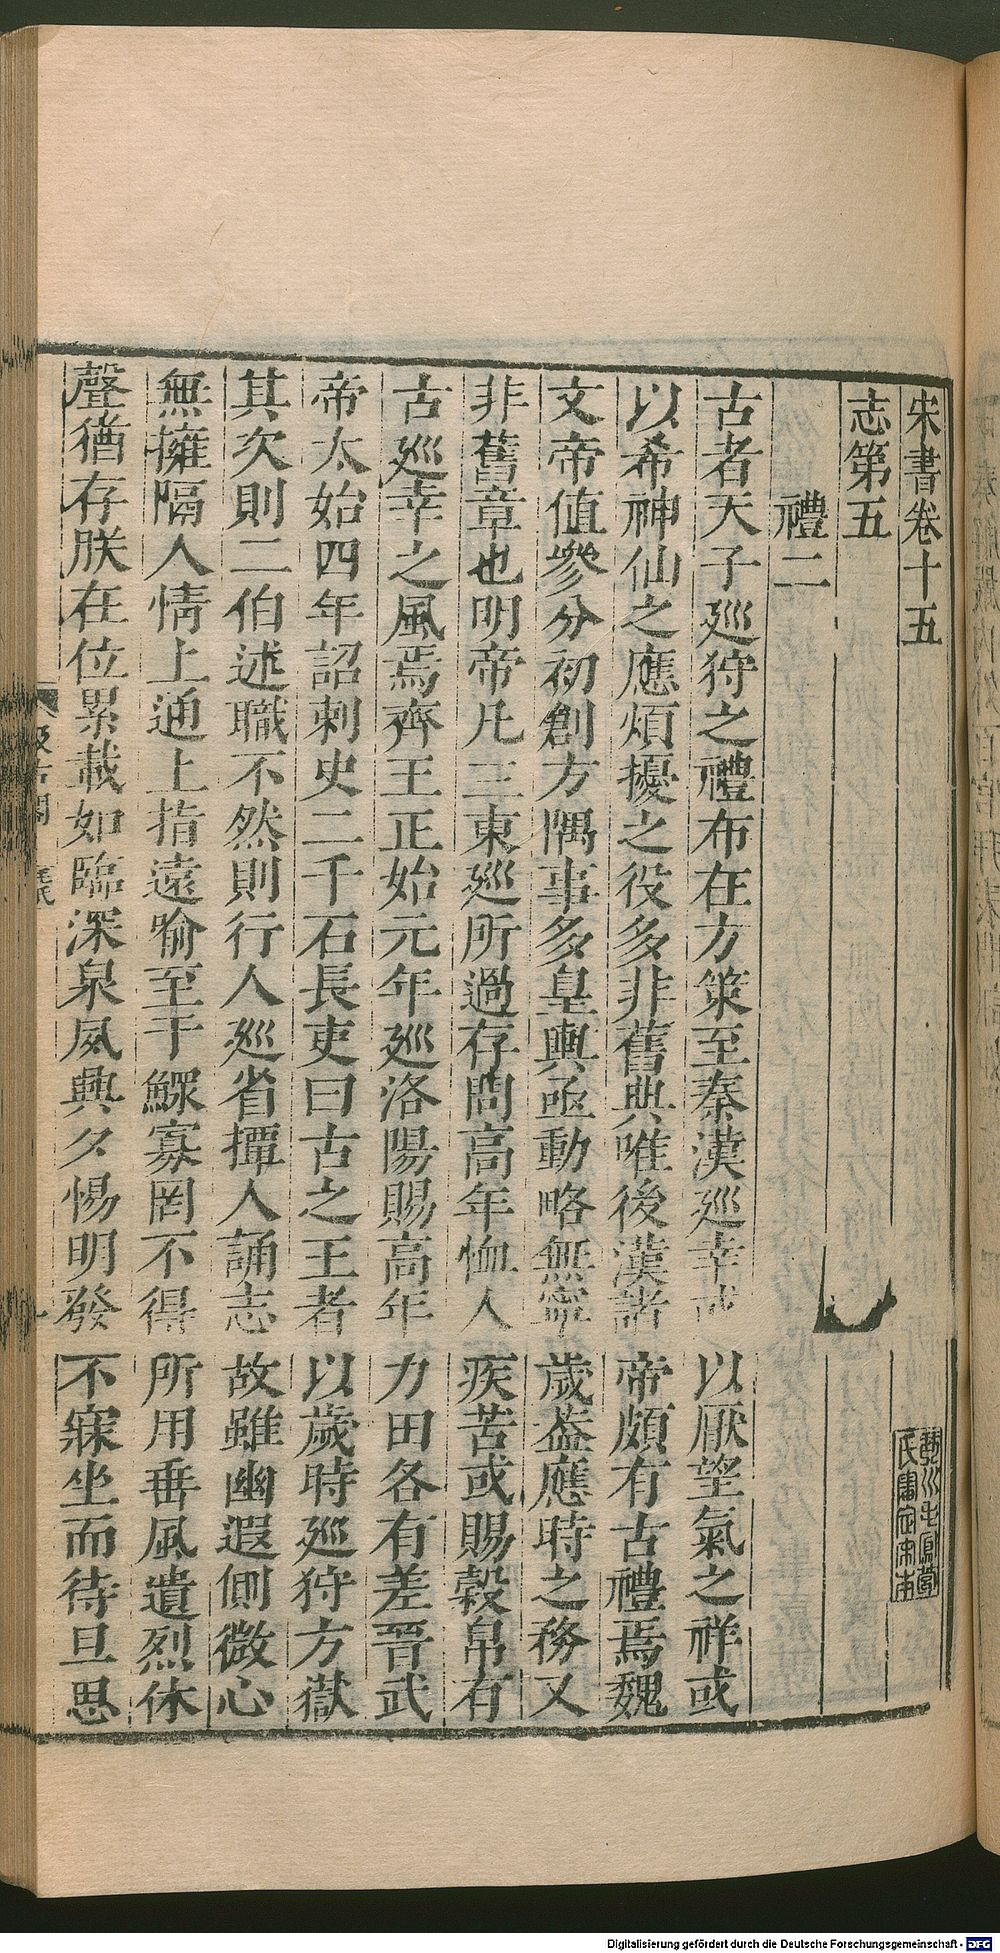 宋書卷十五
琴川毛鳳苞氏審定宋本
志第五
禮二
古者天子廵狩之禮布在方策至秦漢廵幸或以厭望氣之祥或
以希神仙之應煩擾之役多非舊典唯後漢諸帝頗有古禮焉魏
文帝值參分初創方隅事多皇輿亟動略無寧歲葢應時之務又
非舊章也明帝凡三東廵所過存問高年恤人疾苦或賜穀帛有
古廵幸之風焉齊王正始元年廵洛陽賜高年力田各有差晉武
帝太始四年詔刺史二千石長吏曰古之王者以歲時廵狩方嶽
其次則二伯述職不然則行人廵省撢人誦志故雖幽遐側微心
無擁隔人情上通上指遠喻至于鰥寡罔不得所用垂風遺烈休
聲猶存朕在位累載如臨深泉夙興夕惕明發不寐坐而待旦思
汲古閣
毛氏
Digitalisierung gefördert durch die Deutsche Forschungsgemeinschaft - DFG